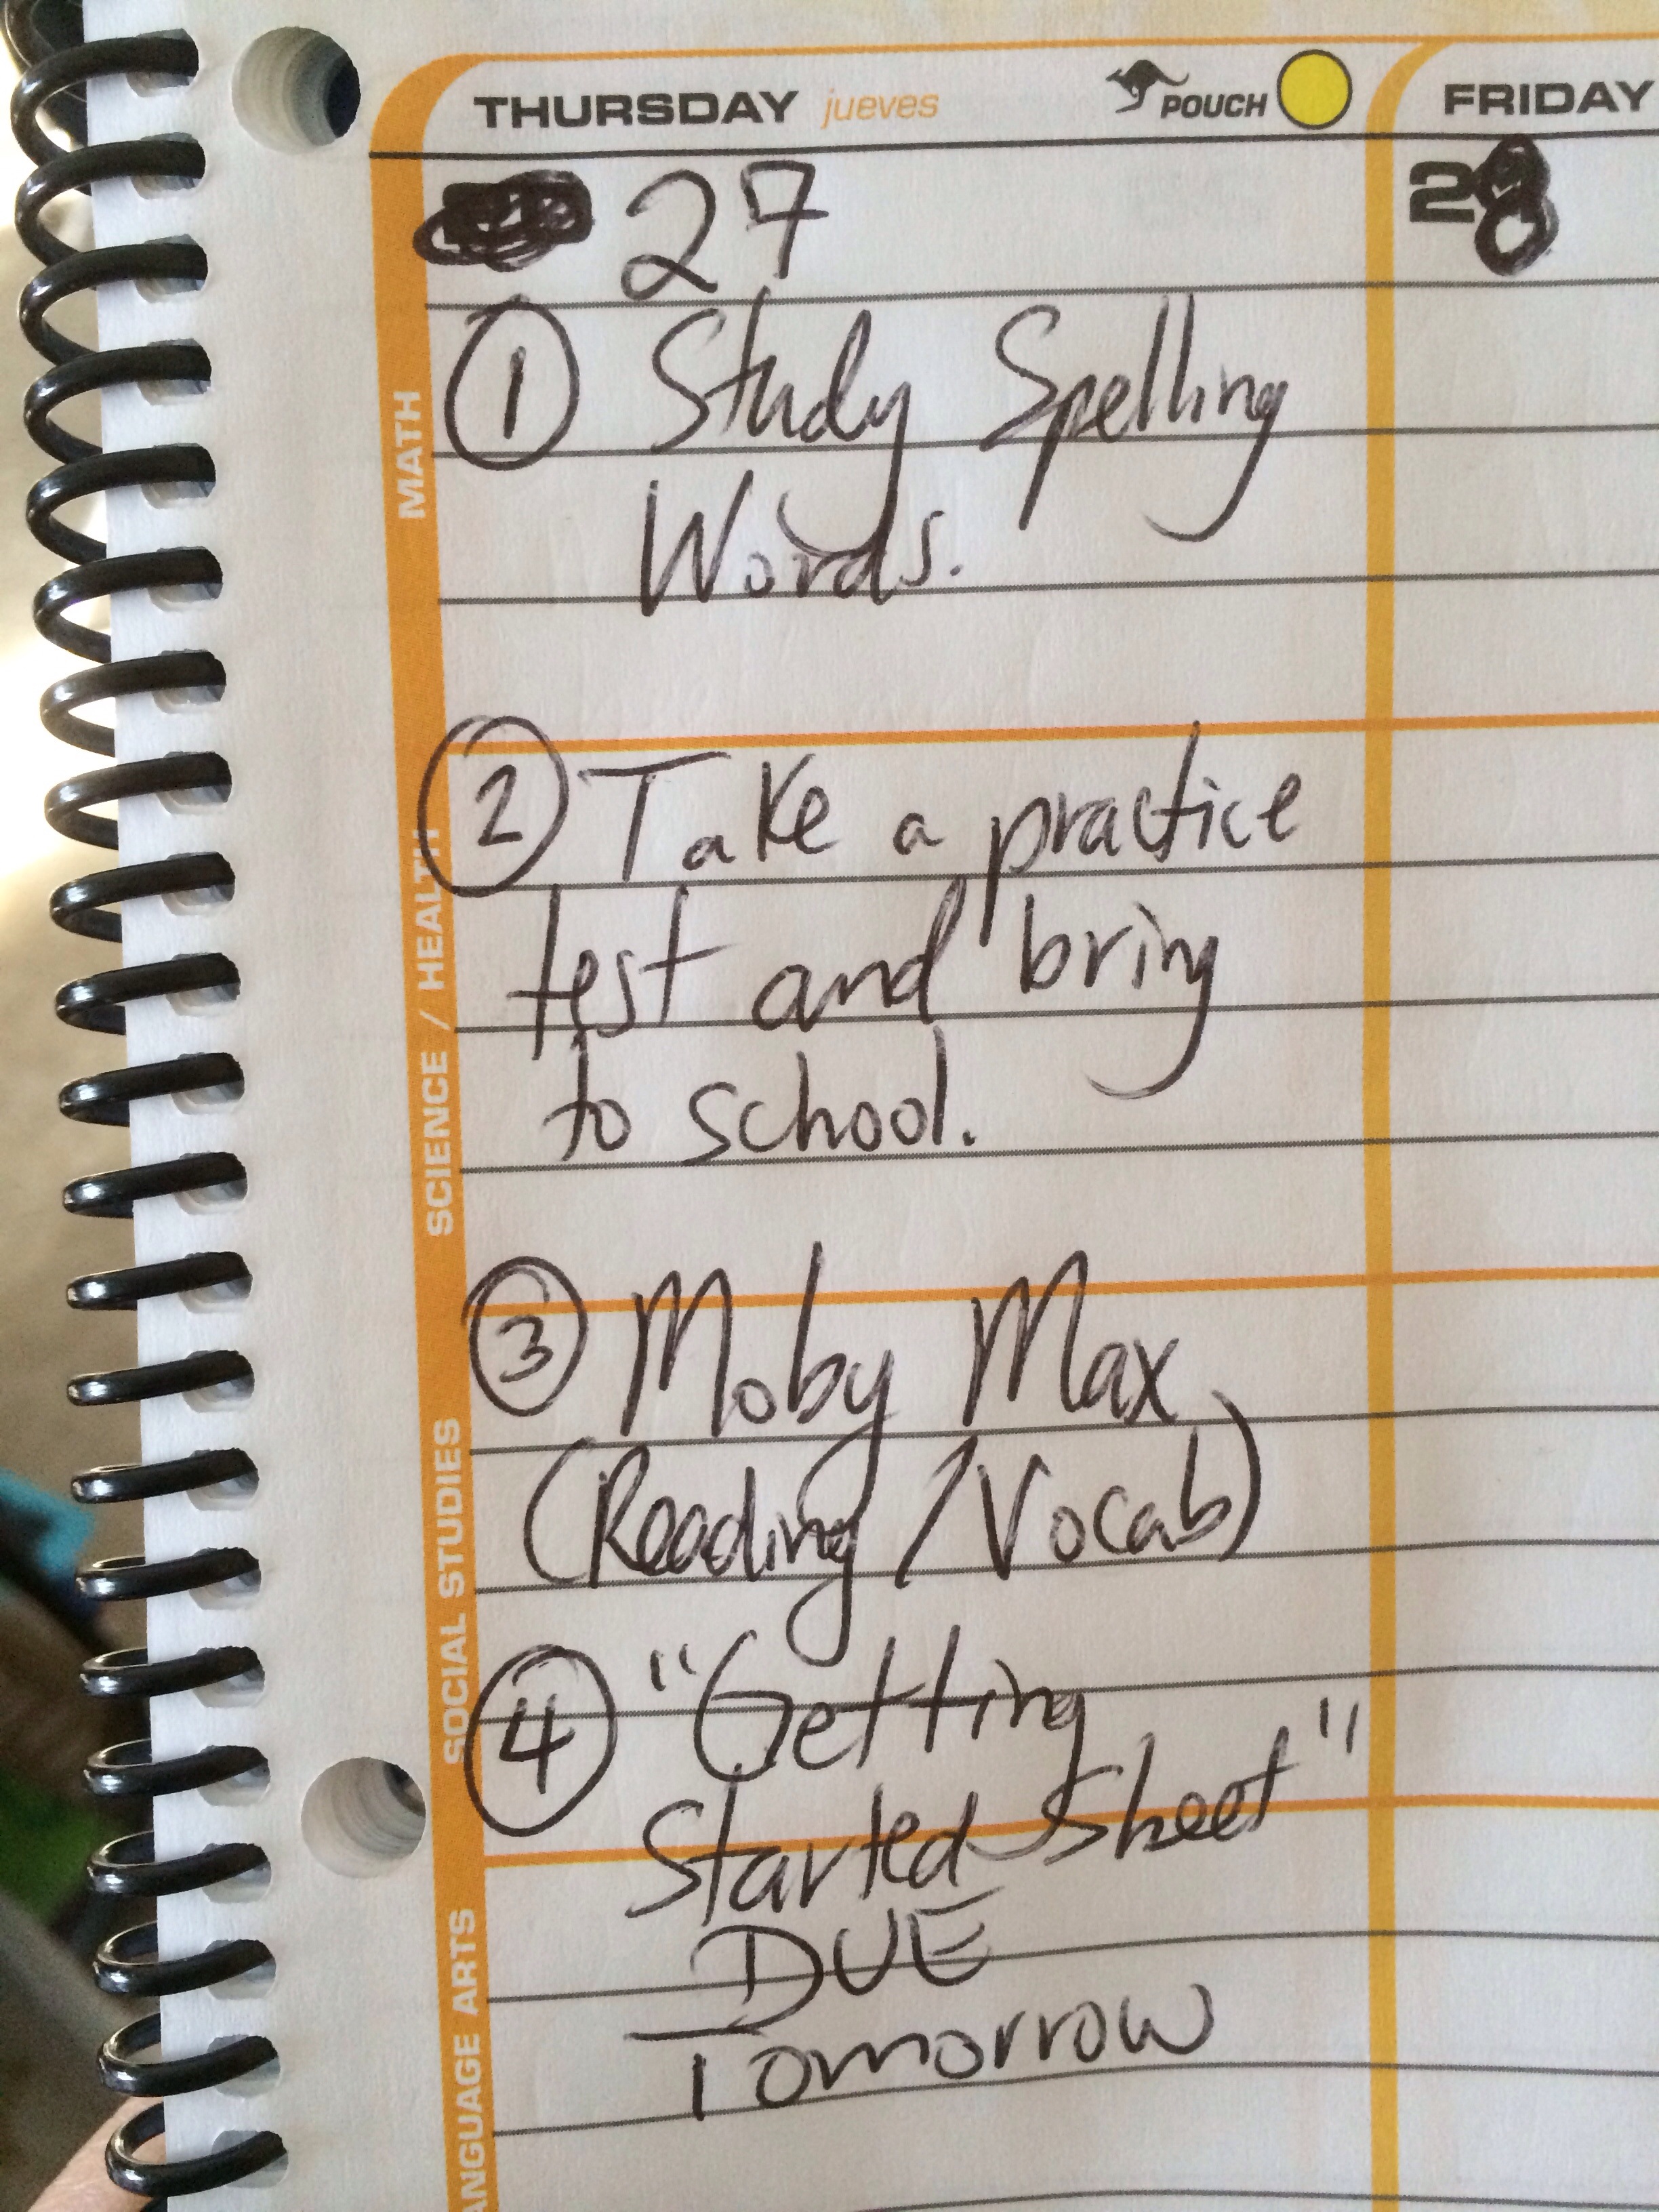 THURSDAY jueves POUCH
27
① Study Spelling
Words.
② Take a practice
test and bring
to school.
③ Moby Max
(Reading / Vocab)
④ "Getting
Started Sheet"
DUE
Tomorrow
FRIDAY
28
MATH
SCIENCE / HEALTH
SOCIAL STUDIES
ANGUAGE ARTS